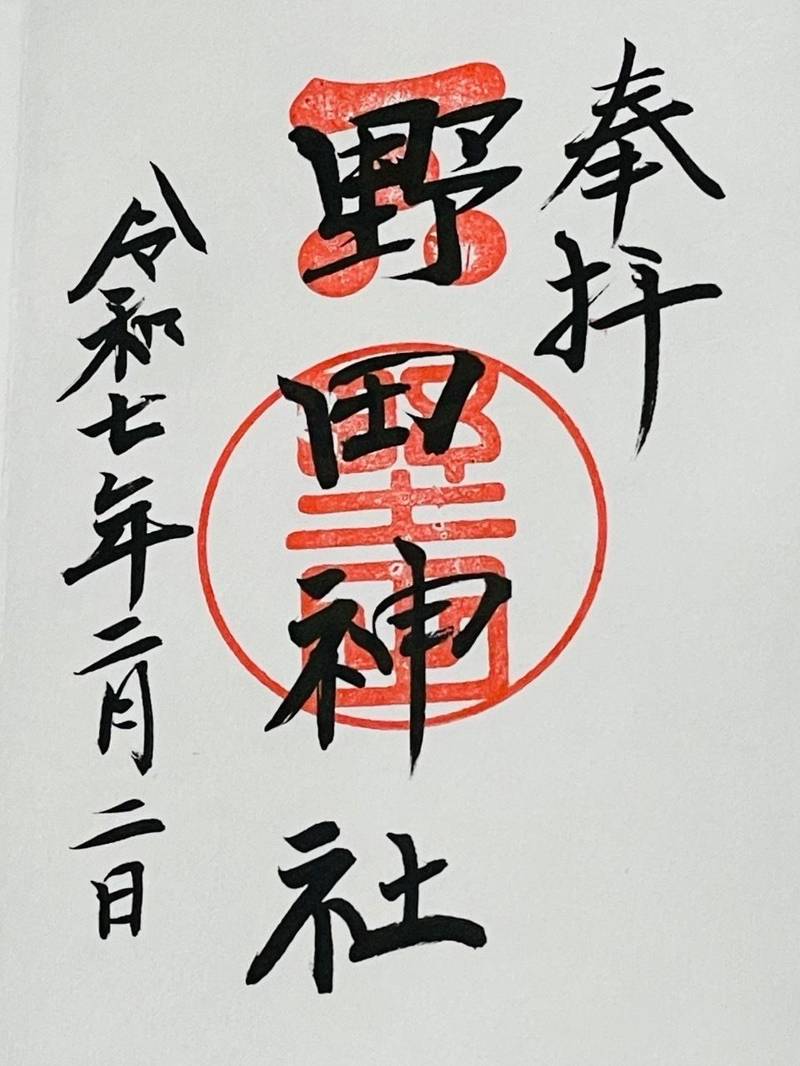 奉拝
野田神社
令和七年二月二日
野田